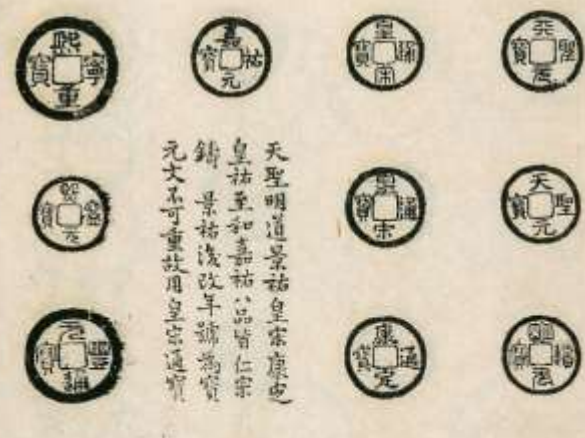 天聖元寶
天聖元寶
皇宋通寶
皇宋通寶
康定通寶
嘉祐元寶
天聖明道景祐皇宋康定
皇祐至和嘉祐八品皆仁宗
鑄 景祐後改年號為寶
元文不可重故用皇宋通寶
熙寧重寶
熙寧元寶
元豐通寶